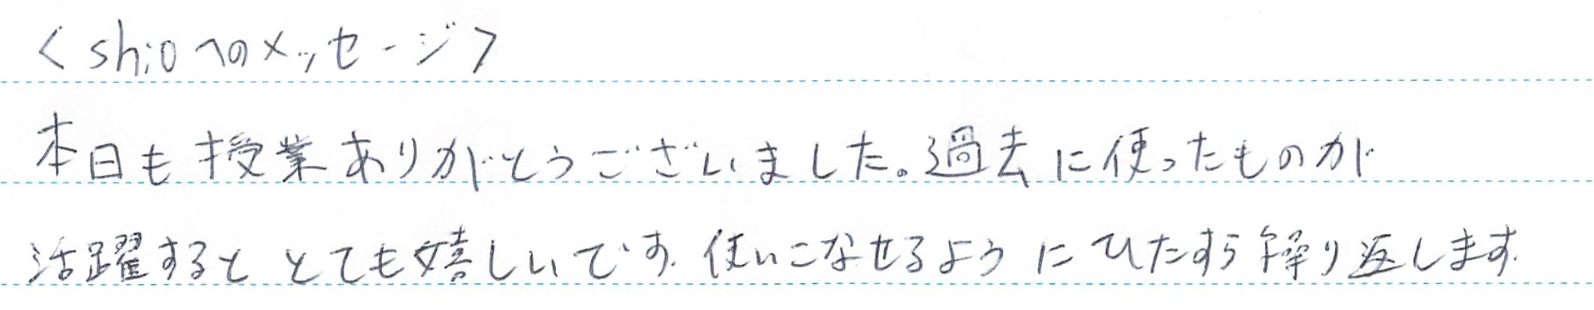 <shioへのメッセージ>
本日も授業ありがとうございました。過去に使ったものが
活躍するととても嬉しいです。使いこなせるようにひたすら繰り返します。